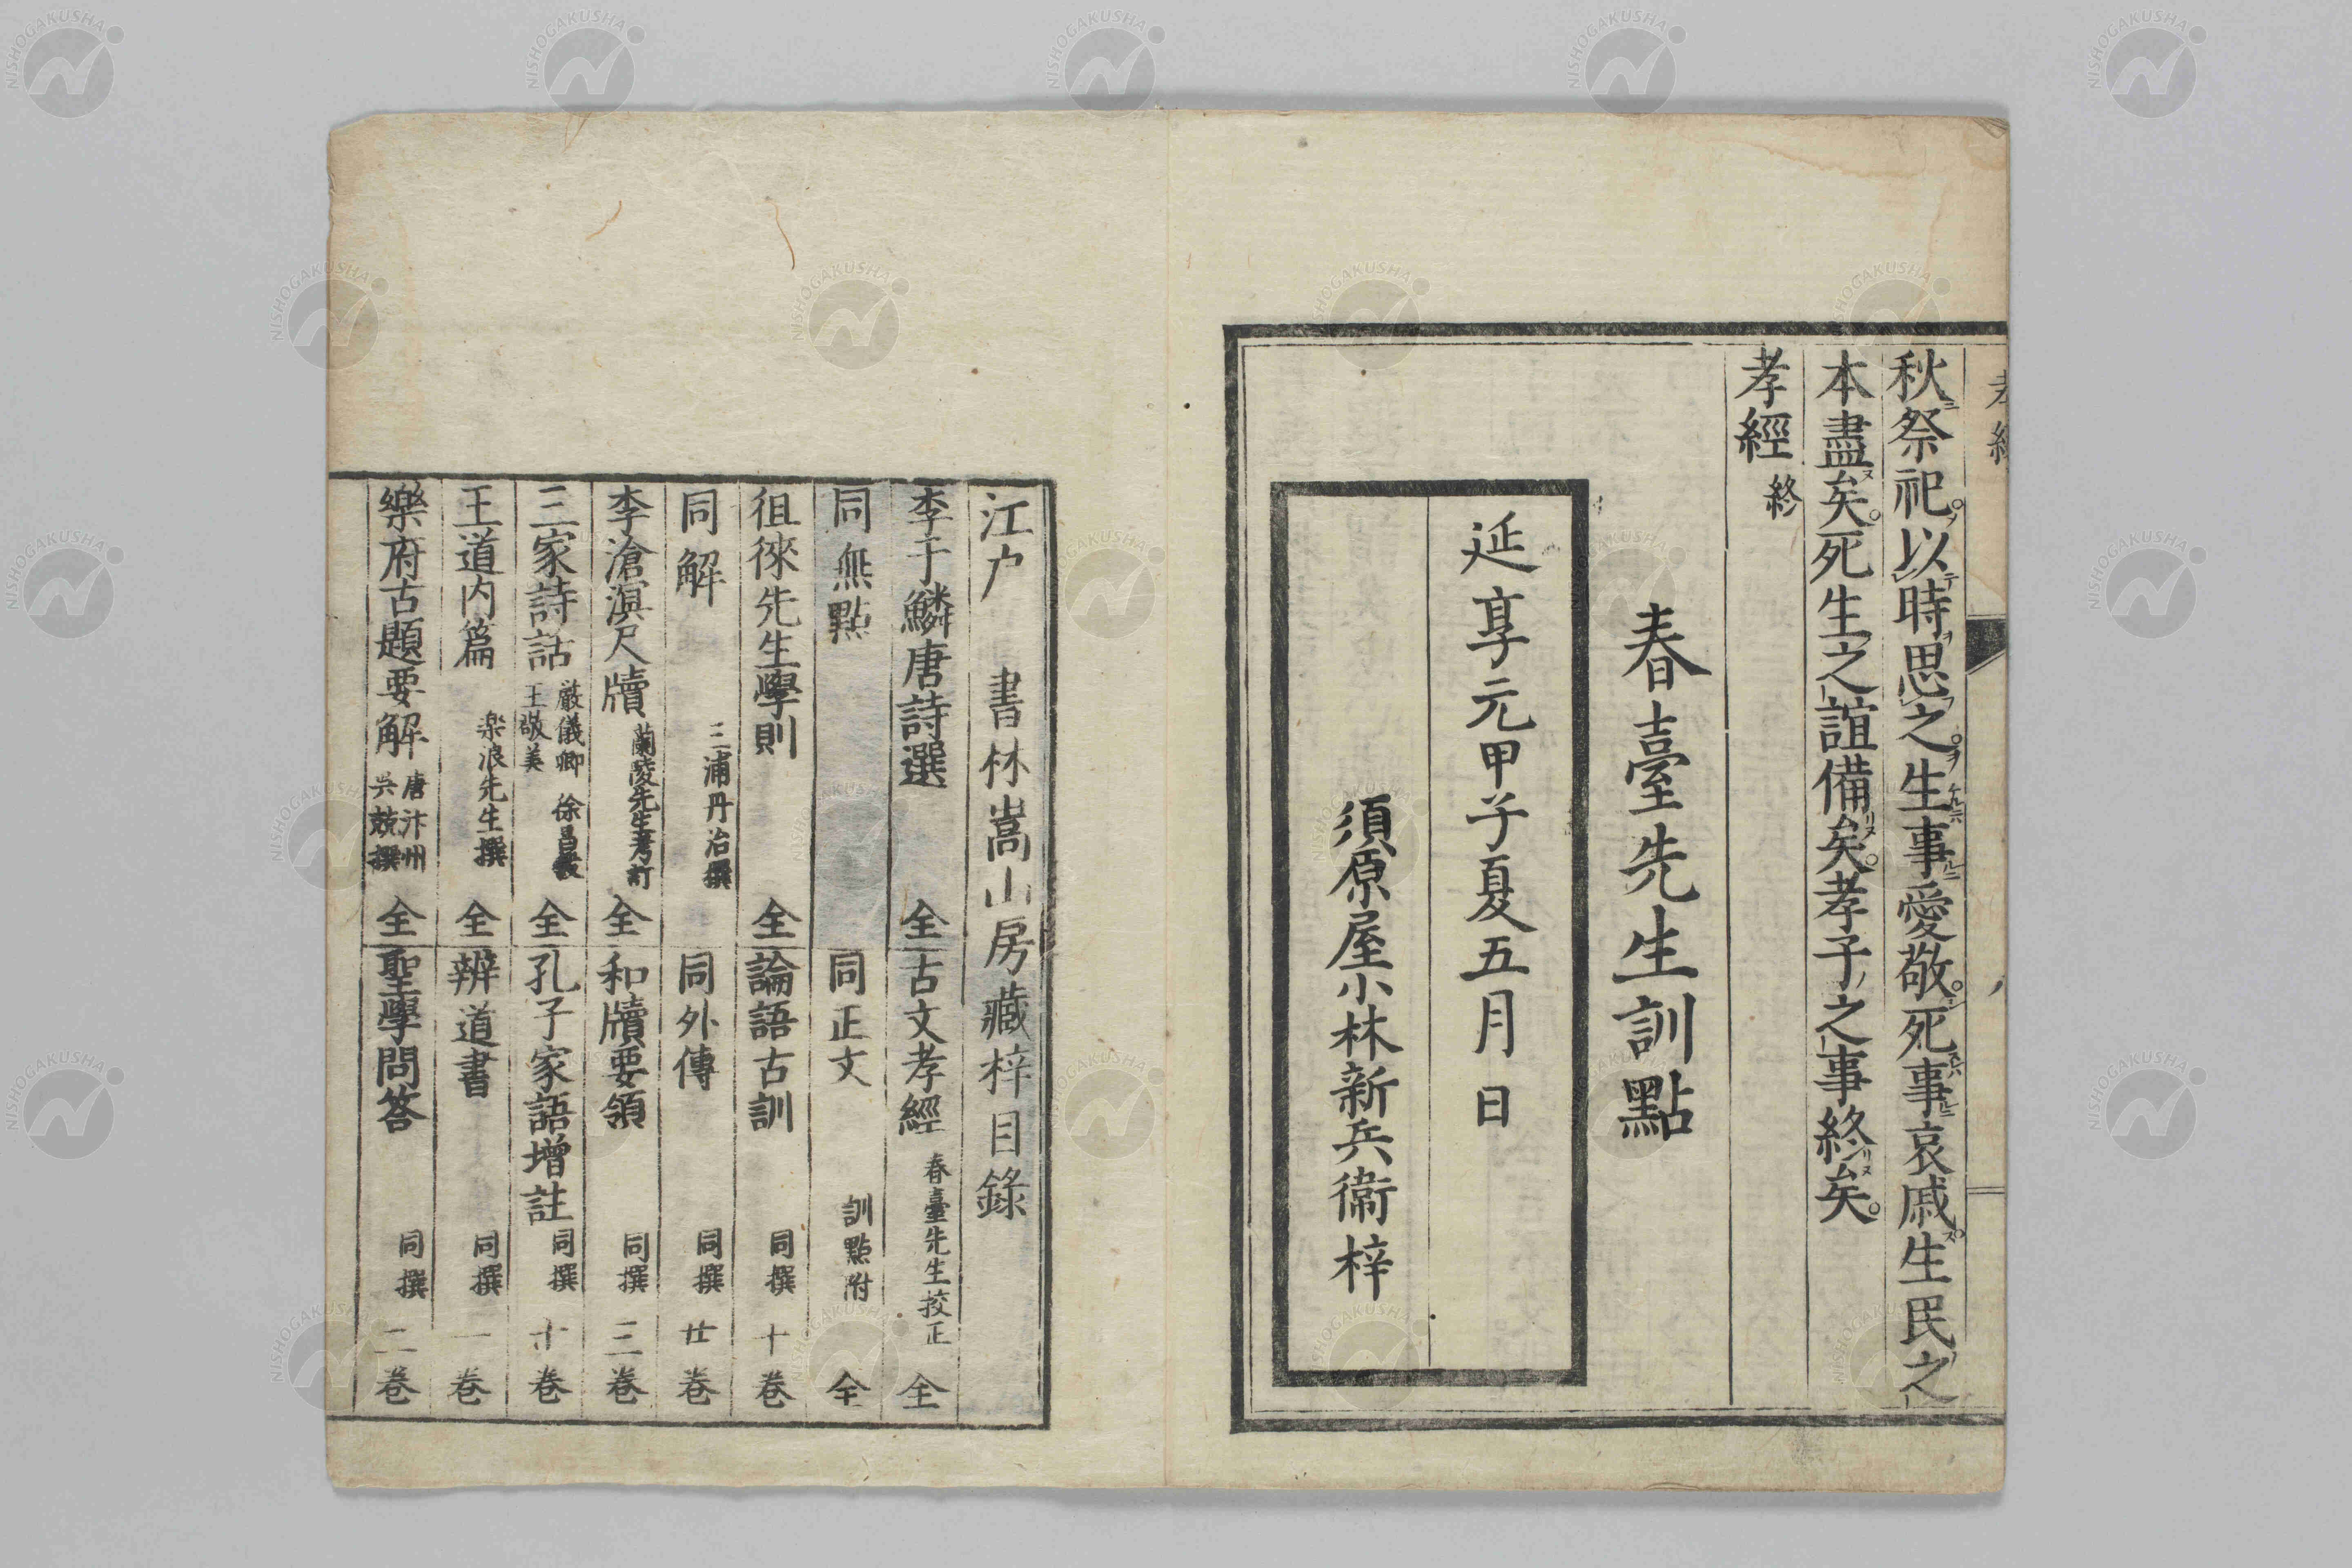 秋祭祀以時思之生事愛敬死事哀戚生民之
本盡矣死生之誼備矣孝子之事終矣
孝經 終
春臺先生訓點
延享元甲子夏五月日
須原屋小林新兵衞梓
江戸 書林嵩山房藏梓目錄
李于鱗唐詩選 全
古文孝經 春臺先生挍正 全
同無點
同正文 訓點附 全
徂徠先生學則 全
論語古訓 同撰 十卷
同解 三浦丹治撰
同外傳 同撰 廿卷
李滄溟尺牘 蘭陵先生考訂 全
和牘要領 同撰 三卷
三家詩話 嚴儀卿 徐昌穀 王敬美 全
孔子家語增註 同撰 十卷
王道内篇 楽浪先生撰 全
辨道書 同撰 一卷
樂府古題要解 唐汴州吳兢撰 全
聖學問答 同撰 二卷
NISHOGAKUSHA